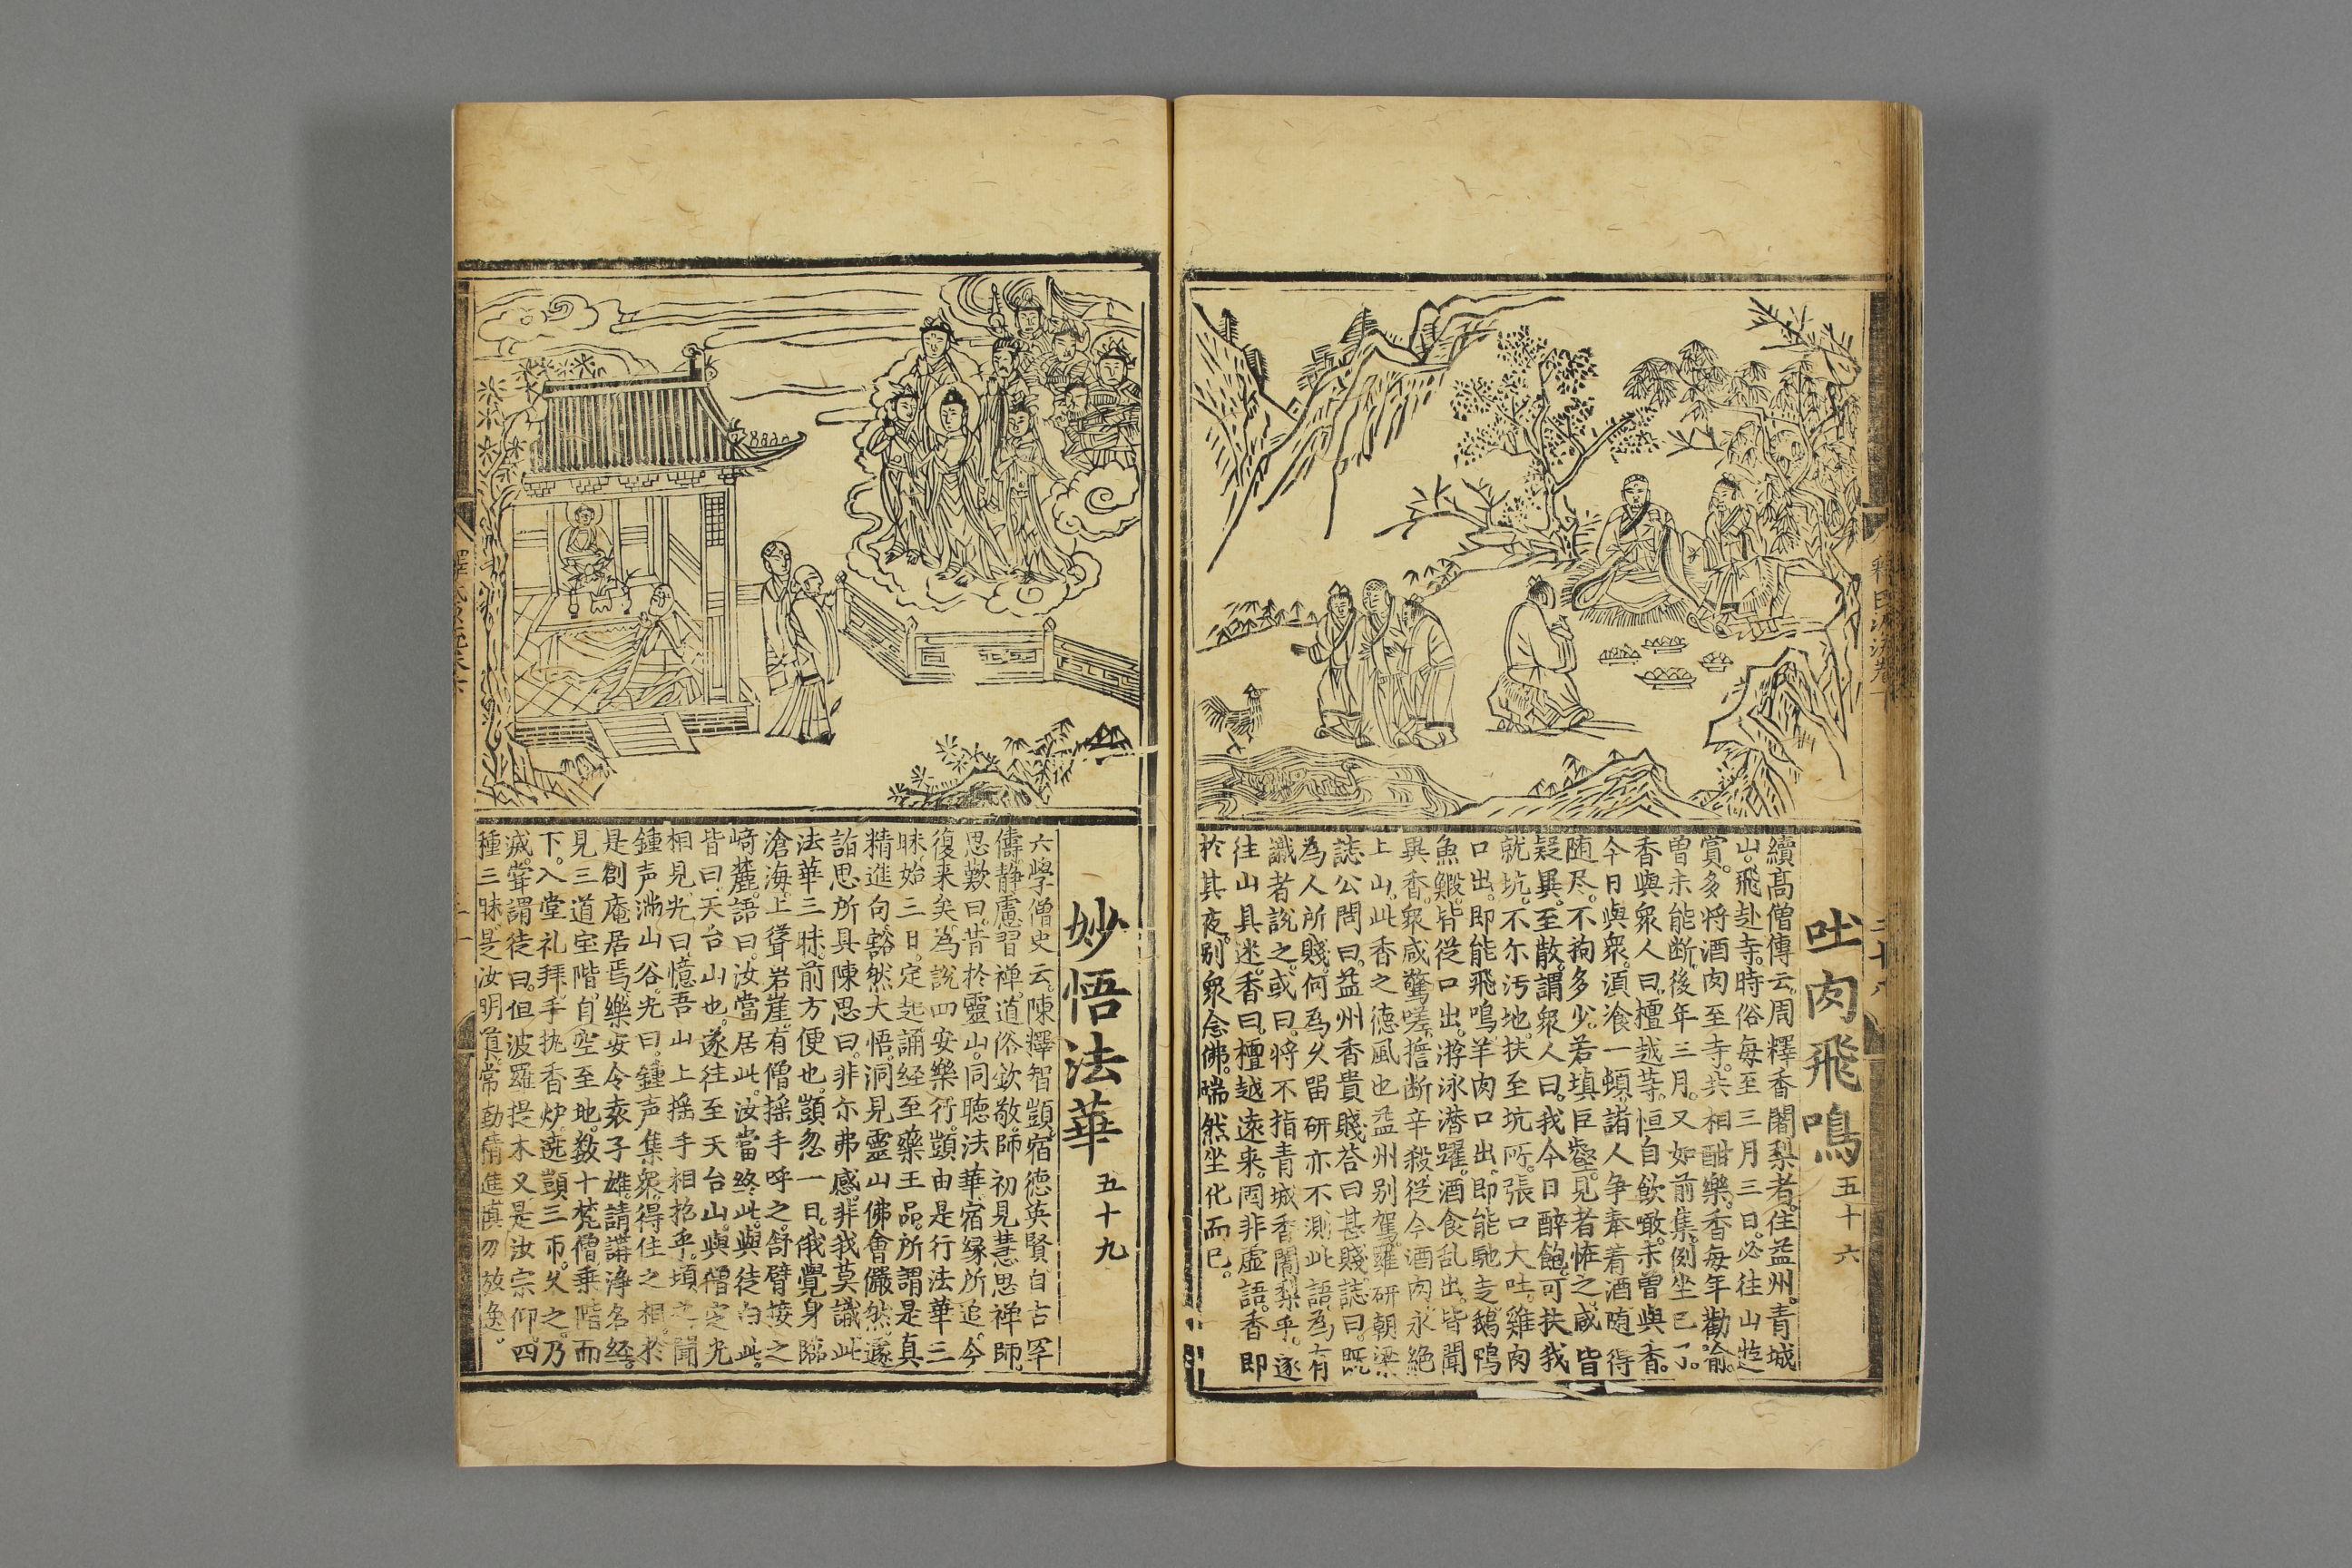 吐肉飛鳴 五十六
續高僧傳云。周釋香闍梨者。住益州。青城
山。飛赴寺。時俗每至三月三日。必往山遊
賞。多将酒肉至寺。共相酣樂。香每年勸喻。
曽未能断。後年三月。又如前集。例坐已了。
香與衆人曰。檀越䓁。恒自飲噉。未曽與香。
今日與衆。湏飡一頓。諸人争奉着酒随得
随尽。不拘多少。若填巨壑。見者恠之。咸皆
疑異。至散。謂衆人曰。我今日醉飽。可扶我
就坑。不尔汚地。扶至坑所。張口大吐。雞肉
口出。即能飛鳴。羊肉口出。即能馳走。鵝鴨
魚鰕。皆従口出。游泳潜躍。酒食乱出。皆聞
異香。衆咸驚嗟。擔断辛殺従今酒肉永絶
上山。此香之德風也益州别駕。羅研朝梁
誌公問曰。益州香貴賤荅曰甚賤。誌曰。既
為人所賤。何為久留研亦不測此語。為有
識者說之。或曰。将不指青城香闍梨乎。遂
往山具迷。香曰。檀越遠来。固非虛語。香即
於其夜。别衆念佛。端然坐化而巳。
妙悟法華 五十九
六學僧史云。陳釋智顗。宿德英賢。自古罕
儔。静慮習禅。道俗欽敬。師初見慧思禅師。
思歎曰。昔於靈山。同聴法華。宿縁所追。今
復来矣。為說四安樂行。顗由是行法華三
昧。始三日。定起誦経至藥王品。所謂是真
精進句。豁然大悟。洞見靈山佛會儼然。遂
詣思所具陳思曰。非尓弗感。非我莫識。此
法華三昧。前方便也。顗忽一日。俄覺身臨
滄海。上聳岩崖。有僧摇手呼之。舒臂接之
﨑麓。語曰。汝當居此。汝當終此。與徒白此。
皆曰。天台山也。遂往至天台山。與僧定光
相見。光曰。憶吾山上摇手相招乎。湏之聞
鍾声満山谷。光曰。鍾声集衆。得住之相。於
是創庵居焉。樂安令袁子雄。請講浄名経。
見三道宝階。自空至地。数十梵僧乗階而
下。入堂礼拜。手执香炉。遶顗三帀。久之。乃
滅。甞謂徒曰。但波羅提木叉是汝宗仰。四
種三昧。是汝明導。常勤精進慎勿放逸。